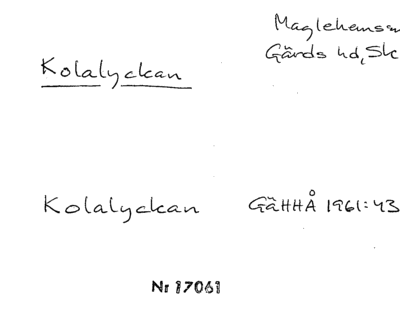 Maglehems sn
Gärds hd, Sk
Kolalyckan
Kolalyckan GäHHÅ 1961:43
Nr 17061